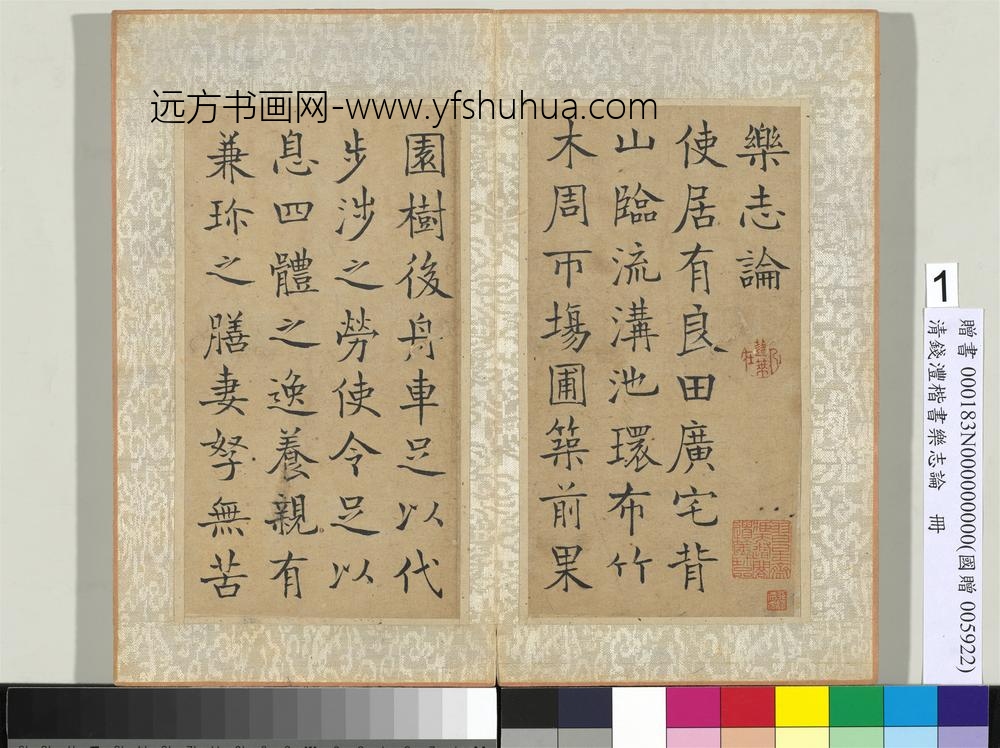 远方书画网-www.yfshuhua.com
樂志論
使居有良田廣宅背
山臨流溝池環布竹
木周帀場圃築前果
園樹後舟車足以代
步涉之勞使令足以
息四體之逸養親有
兼珎之膳妻孥無苦
1
贈書 000183N000000000(國贈 005922)
清錢灃楷書樂志論 冊